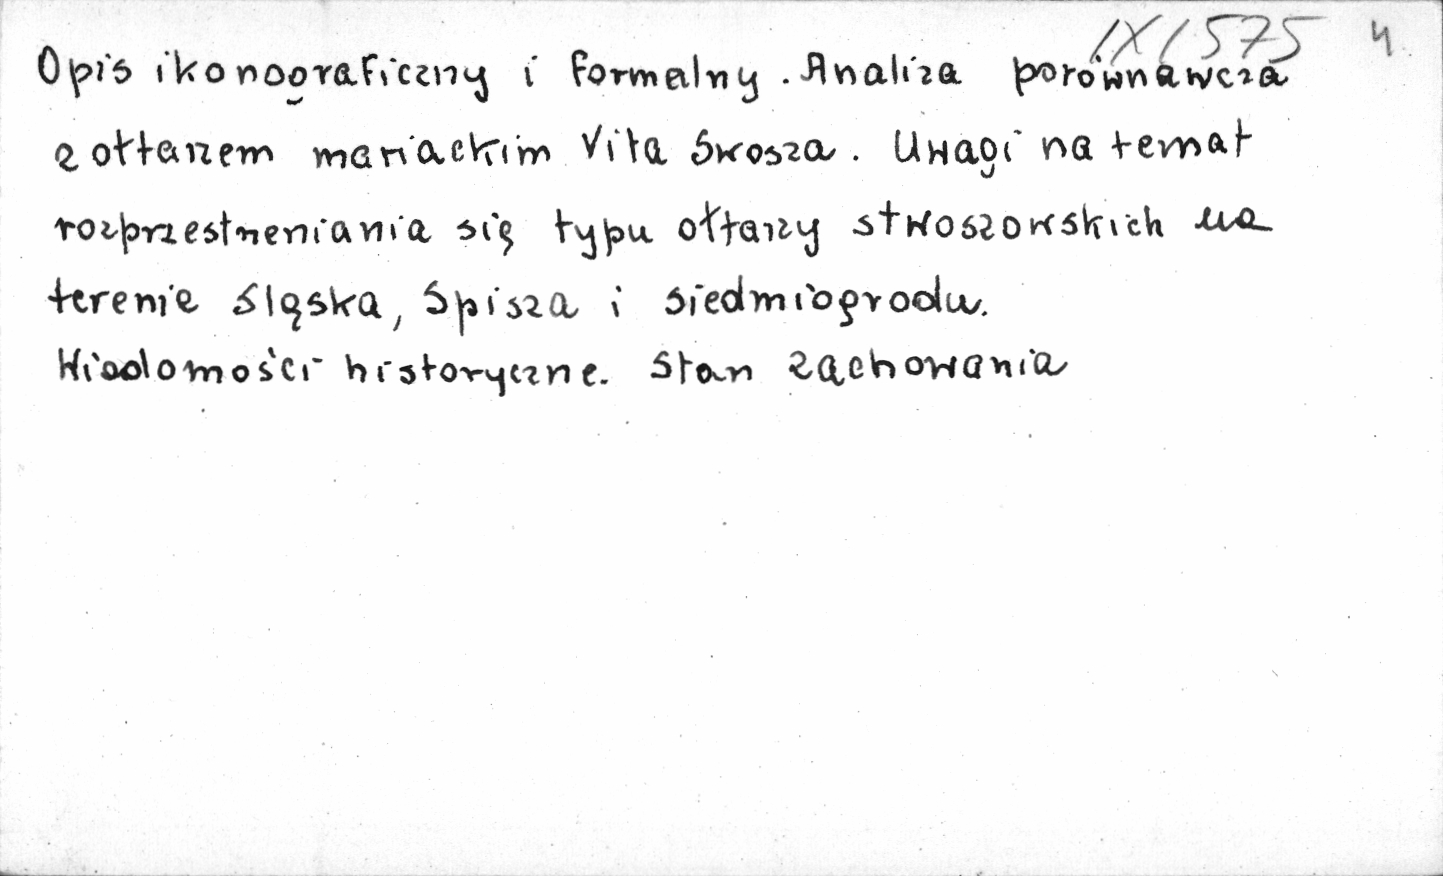 IX/575 4.
Opis ikonograficzny i formalny. Analiza porównawcza
z ołtarzem mariackim Wita Swosza. Uwagi na temat
rozprzestrzeniania się typu ołtarzy stwoszowskich na
terenie Śląska, Spisza i Siedmiogrodu.
Wiadomości historyczne. Stan zachowania